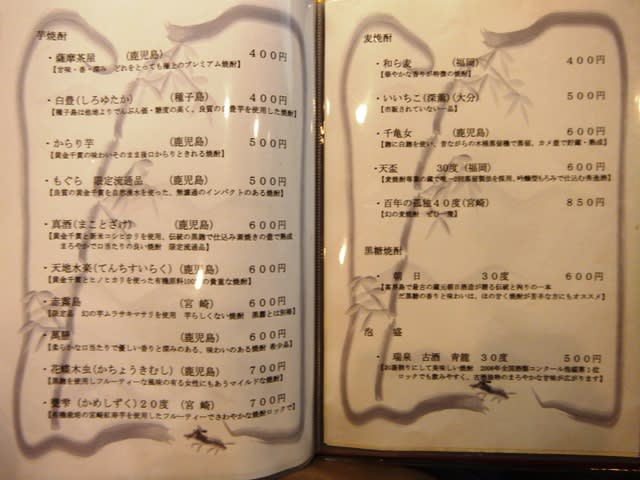 芋焼酎
・薩摩茶屋 (鹿児島) 400円
【甘味・香・深み どれをとっても極上のプレミアム焼酎】
・白豊(しろゆたか) (種子島) 400円
【種子島は他地よりでんぷん価・糖度の高く、良質の白豊芋を使用した焼酎】
・からり芋 (鹿児島) 500円
【黄金千貫の味わいそのまま後口からりときれる焼酎】
・もぐら 限定流通品 (鹿児島) 500円
【良質の黄金千貫を自然湧水を使った、無濾過のインパクトのある焼酎】
・真酒(まことざけ) (鹿児島) 600円
【黄金千貫と新米コシヒカリを使用、伝統の黒麹で仕込み素焼きの壷で熟成
まろやかで口当たりの良い焼酎 限定流通品】
・天地水楽(てんちすいらく) (鹿児島) 600円
【黄金千貫とヒノヒカリを使った有機原料100%の貴重な焼酎】
・赤霧島 (宮崎) 600円
【限定品 幻の芋ムラサキマサリを使用 芋らしくない焼酎 黒霧とは別格】
・萬膳 (鹿児島) 600円
【柔らかな口当たりで優しい香りと深みのある、味わいのある焼酎 希少品】
・花蝶木虫(かちょうきむし) (鹿児島) 700円
【黒麹を使用しフルーティーな風味の有る女性にもあうマイルドな焼酎】
・甕雫(かめしずく)20度 (宮崎) 700円
【有機栽培の宮崎紅寿芋を使用したフルーティーでさわやかな焼酎ロックで】
麦焼酎
・和ら麦 (福岡) 400円
【華やかな香りが特徴の焼酎】
・いいちこ(深薫)(大分) 500円
【市販されていない一品】
・千亀女 (鹿児島) 600円
【麹に白麹を使い、昔ながらの木桶蒸留機で蒸留、カメ壷で貯蔵・熟成】
・天盃 30度(福岡) 600円
【麦焼酎専業の蔵で唯一2回蒸留製法を採用、吟醸型もろみで仕込む本格焼酎】
・百年の孤独40度(宮崎) 850円
【幻の麦焼酎 ぜひ一度】
黒糖焼酎
・朝日 30度 600円
【喜界島で最古の蔵元朝日酒造が贈る伝統と拘りの一本
だ黒糖の香りと味わいは、ほの甘く焼酎が苦手な方にもオススメ】
泡盛
・瑞泉 古酒 青龍 30度 500円
【お湯割りにして美味しい焼酎 2006年全国酒類コンクール泡盛第1位
ロックでも飲みやすく、古酒独特のまろやかな甘味が広がります】